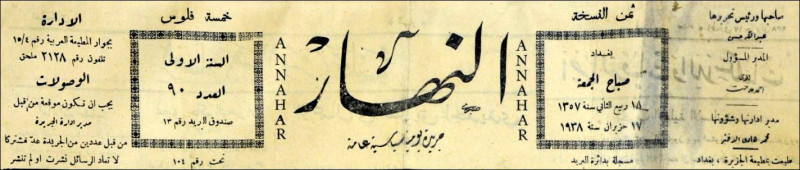 صاحبها ورئيس تحريرها
عبدالله حسن
المدير المسؤول
مدير ادارتها وشؤونها
طبعت بمطبعة الجزيرة . بغداد
ثمن النسخة
بغداد
صباح الجمعة
١٨ ربيع الثاني سنة ١٣٥٧
١٧ حزيران سنة ١٩٣٨
مسجلة بدائرة البريد
ANNAHAR
النهار
جريدة يومية سياسية عامة
ANNAHAR
خمسة فلوس
السنة الاولى
العدد ٩٠
صندوق البريد رقم ١٣
تحت رقم ١٠٤
الادارة
بجوار المطبعة العربية رقم ١٥/٤
تلفون رقم ٢١٢٨ ملحق
الوصولات
يجب ان تكون موقعة من قبل
مدير ادارة الجريدة
من قبل عددين من الجريدة عد مشتركا
لا تعاد الرسائل نشرت او لم تنشر